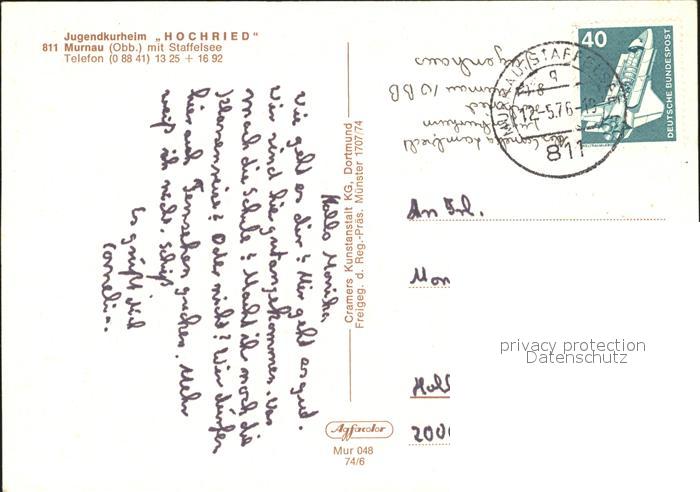 Jugendkurheim „HOCHRIED"
811 Murnau (Obb.) mit Staffelsee
Telefon (0 88 41) 13 25 + 16 92
Hallo Monika
wie geht es dir? Mir geht es gut.
Wir sind hie gut angekommen. Was
mach die Schule? Macht ih noch die
Klassenreise? Oder nicht? Wir dürfen
hier auch Fernsehen gucken. Mehr
weiß ich nicht. Schöß
Es grüßt dich
Cornelia.
Cramers Kunstanstalt KG, Dortmund
Freigeg. d. Reg.-Präs. Münster 1707/74
Agfacolor
Mur 048
74/6
40
DEUTSCHE BUNDESPOST
MURNAU/STAFFELSEE
12.-5.76-18
811
An Frl.
Mon
2000
privacy protection
Datenschutz